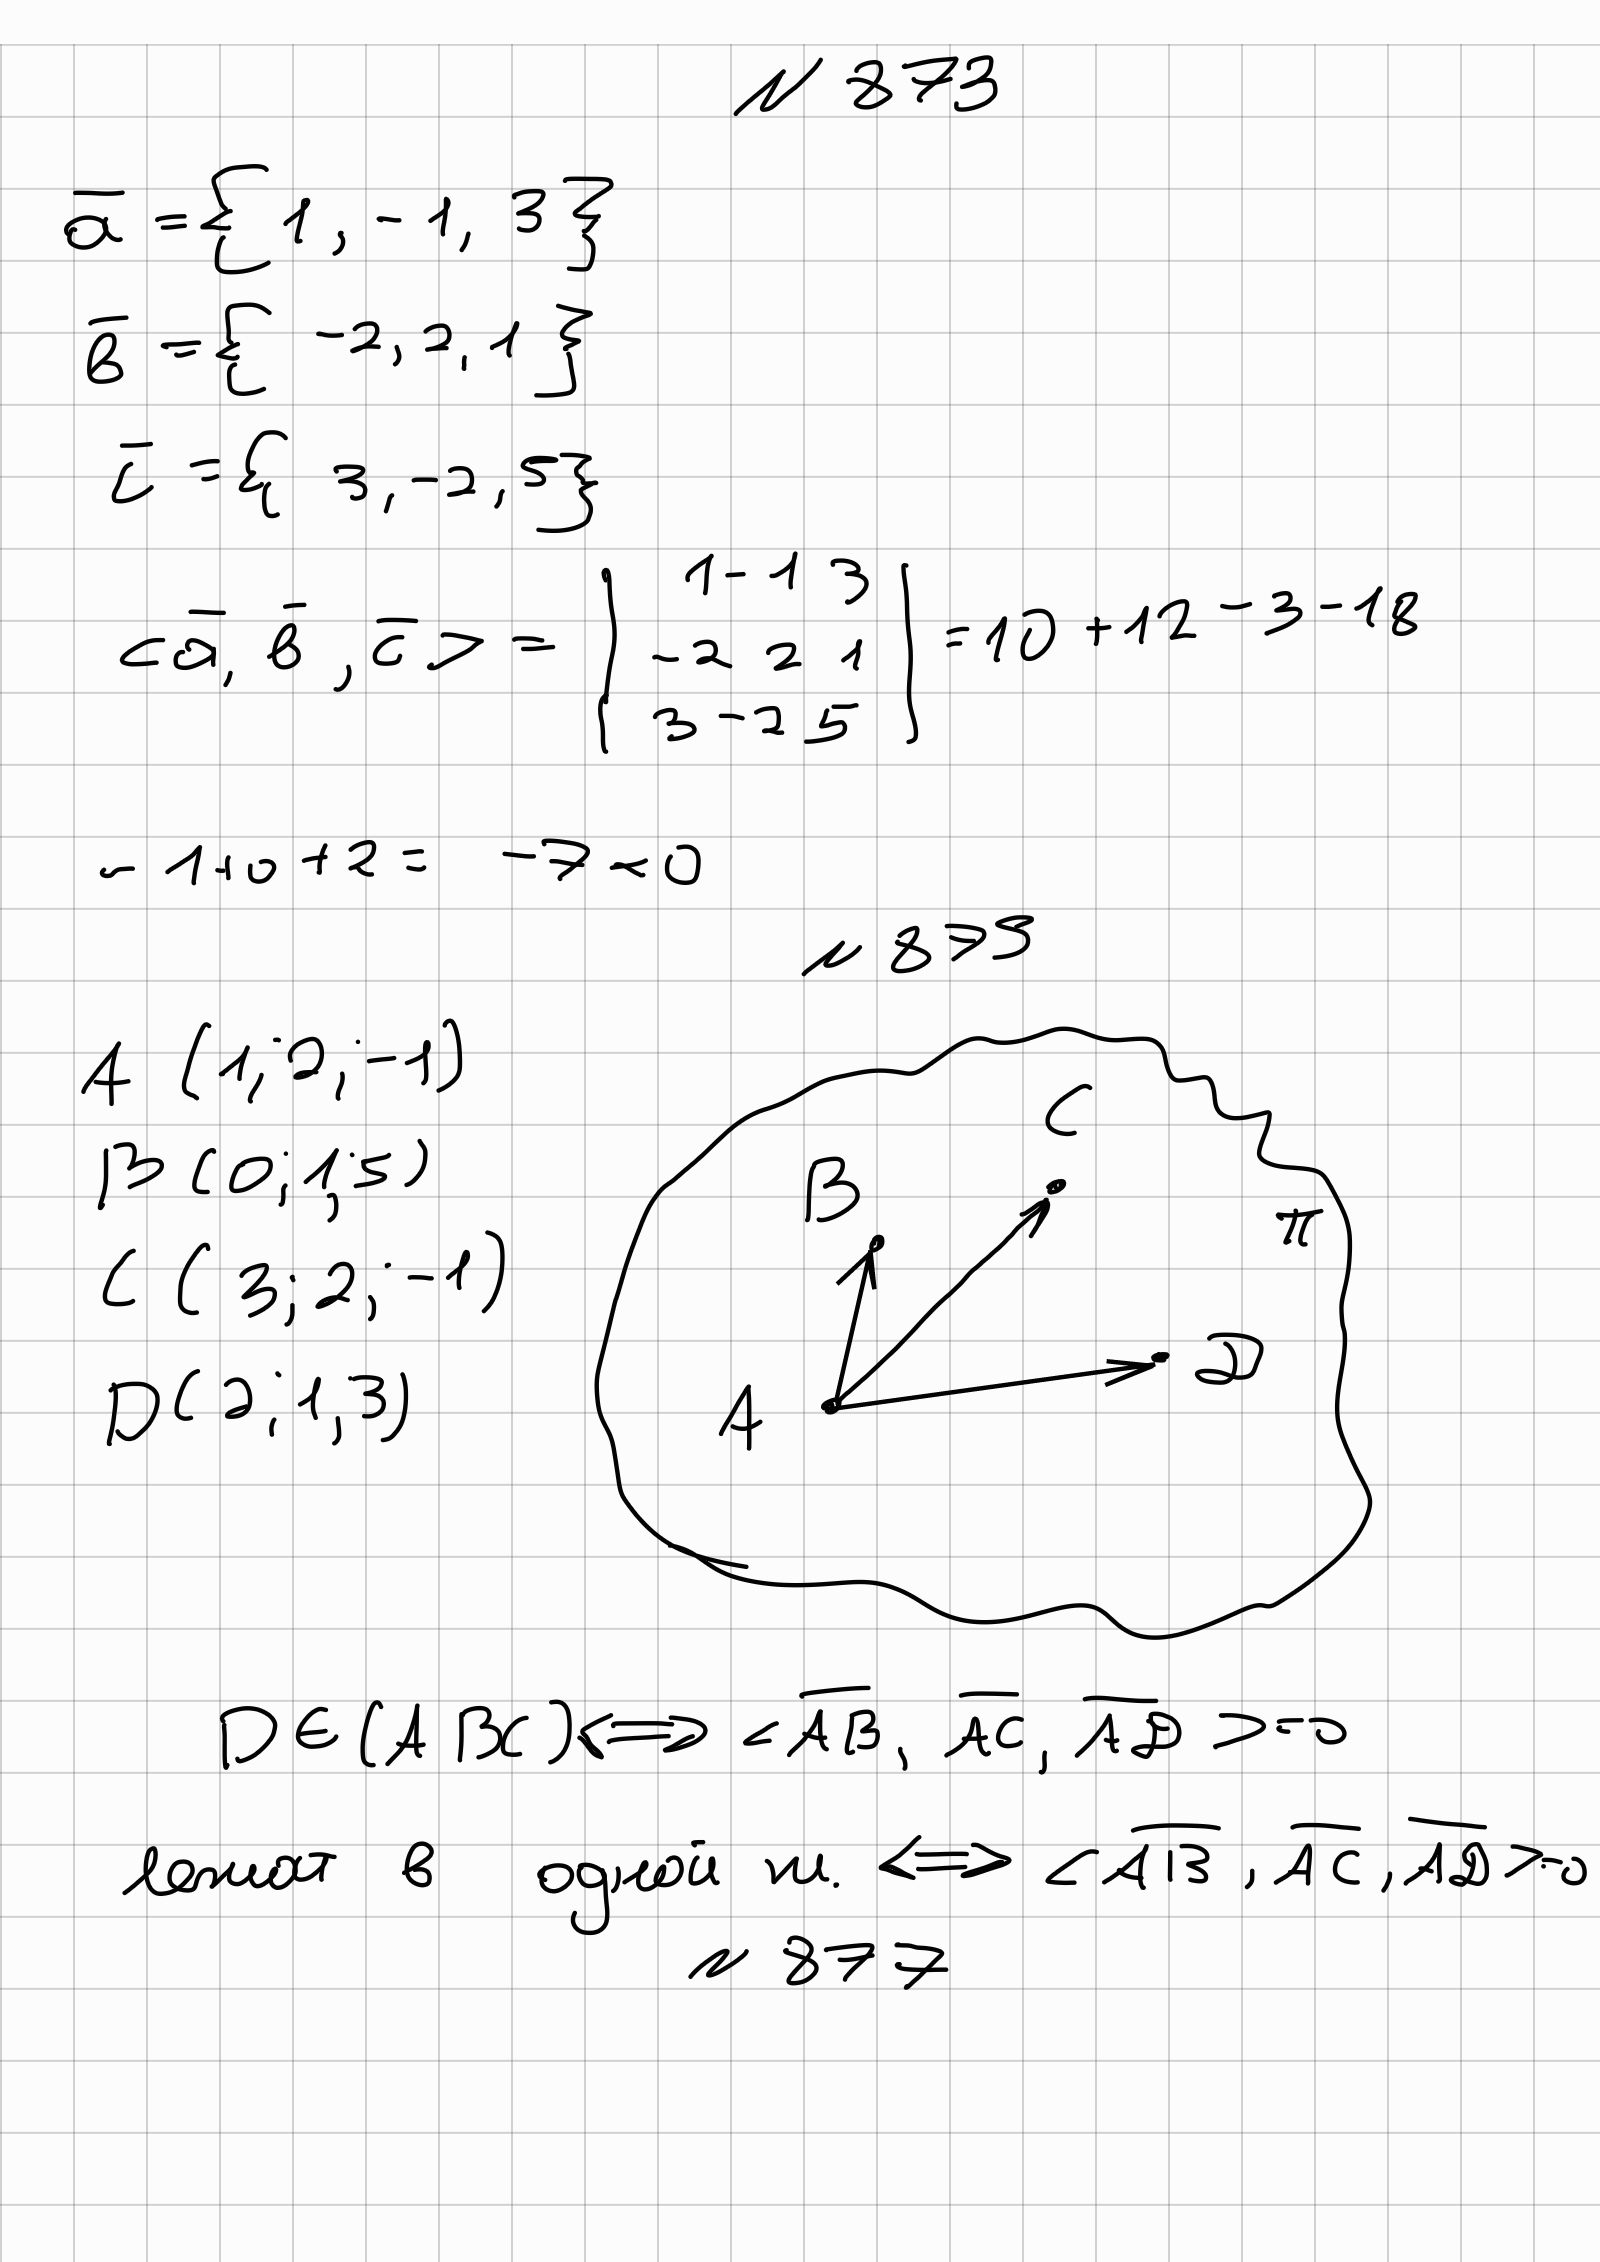 N 873
a̅ = { 1, -1, 3 }
b̅ = { -2, 2, 1 }
c̅ = { 3, -2, 5 }
<a̅, b̅, c̅> = | 1 -1 3 | = 10 + 12 - 3 - 18
| -2 2 1 |
| 3 -2 5 |
- 10 + 2 = -7 < 0
N 875
A (1; 2; -1)
B (0; 1; 5)
C (3; 2; -1)
D (2; 1; 3)
C
B
π
D
A
D ∈ (ABC) <=> <A̅B̅, A̅C̅, A̅D̅> = 0
лежат в одной пл. <=> <A̅B̅, A̅C̅, A̅D̅> = 0
N 877